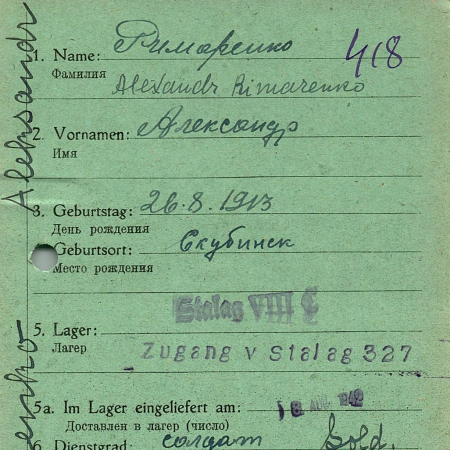 1. Name: Римаренко 418
Фамилия
Alexandr Rimarenko
2. Vornamen: Александр
Имя
3. Geburtstag: 26.8.1913
День рождения
Geburtsort: Скубинск
Место рождения
Stalag VIII C
5. Lager:
Лагерь
Zugang v Stalag 327
5a. Im Lager eingeliefert am: 18. AUG. 1942
Доставлен в лагер (число)
6. Dienstgrad: солдат Sold.
Aleksandr
enko